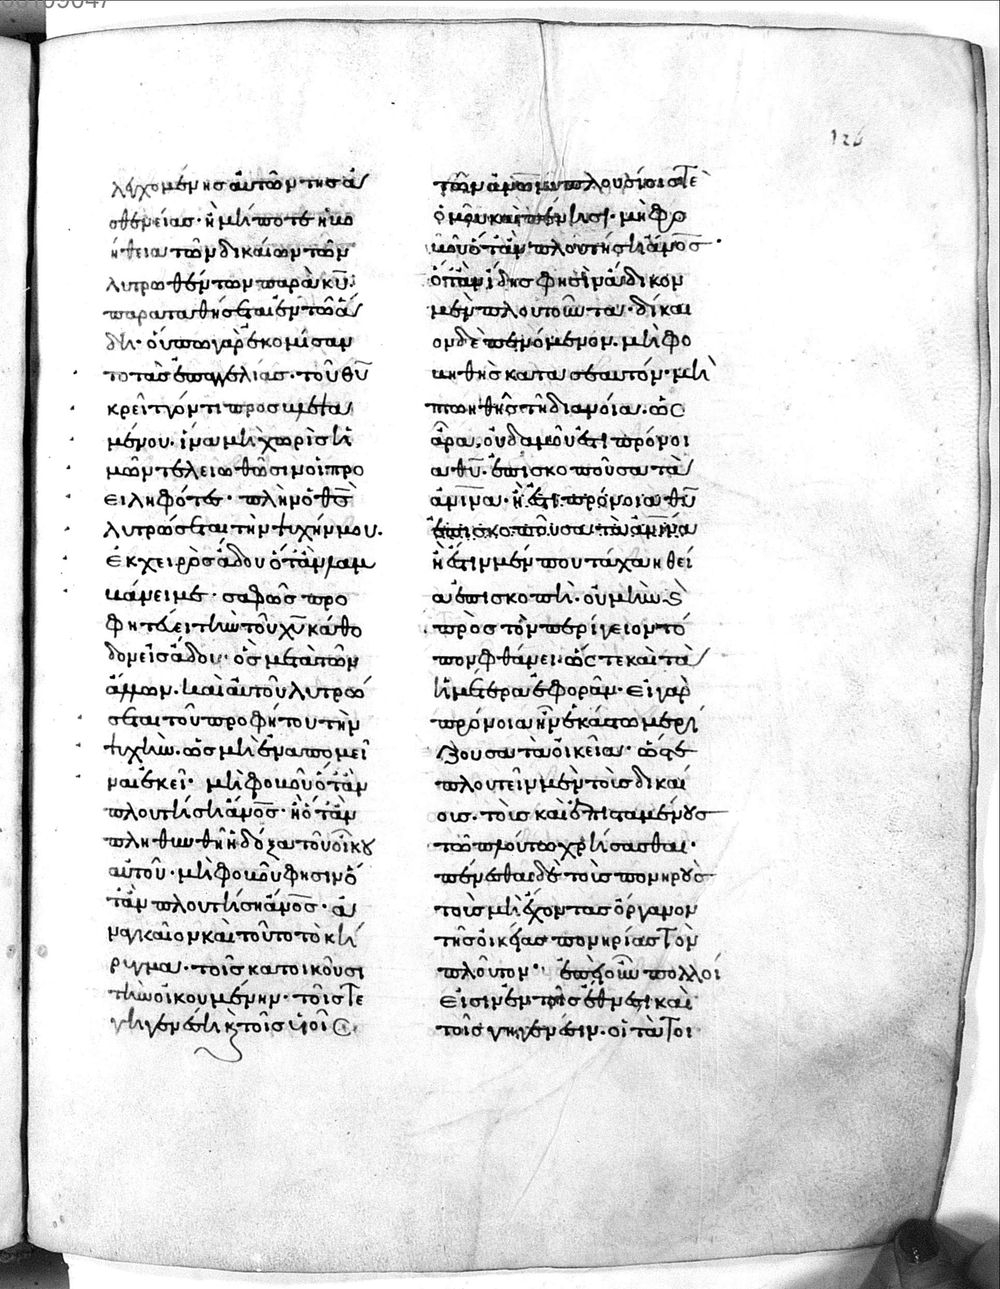 λεγχομένης αὐτῶν τῆς ἀ
σθενείας· ἢ μή ποτε ἡ βο
ήθεια τῶν δικαίων τῶν
λυτρωθέντων παρὰ κ̅υ̅·
παραταθήσεται ἐν τῶ ἅ
δη· οὔπω γὰρ ἐκομίσαν
το τὰς ἐπαγγελίας· τοῦ θ̅υ̅
κρεῖττόν τι προβλεψα
μένου· ἵνα μὴ χωρὶς ἡ
μῶν τελειωθῶσιν οἱ προ
ειληφότες· πλὴν ὁ θ̅ς̅
λυτρώσεται τὴν ψυχήν μου.
ἐκ χειρὸς ἅδου ὅταν λαμ
βάνει με· σαφῶς προ
φητεύει τὴν τοῦ χ̅υ̅ κάθο
δον εἰς ἅδου· ὃς μετὰ τῶν
ἄλλων· καὶ αὐτοῦ λυτρώ
σεται τοῦ προφήτου τὴν
ψυχὴν· ὡς μὴ ἐναπομεῖ
ναι ἐκεῖ· μὴ φοβοῦ ὅταν
πλουτήση ἄν̅ο̅ς̅· ἢ ὅταν
πληθυνθῆ ἡ δόξα τοῦ οἴκου
αὐτοῦ· μὴ φοβοῦ φησιν ὅ
ταν πλουτήση ἄν̅ο̅ς̅· ἀ
ναγκαῖον καὶ τοῦτο τὸ κή
ρυγμα· τοῖς κατοικοῦσι
τὴν οἰκουμένην· τοῖς τε
γηγενέσι κ̀ τοῖς υἱοῖς
τῶν ἀν̅ω̅ν̅ πλουσίοις τε
ὁμοῦ καὶ πένησι· μὴ φο
βοῦ ὅταν πλουτήση ἄν̅ο̅ς̅·
ὅταν ἴδης φησὶν ἄδικον
μὲν πλουτοῦντα· δίκαι
ον δὲ πενόμενον· μὴ φο
βηθῆς κατὰ σεαυτόν· μὴ
πτοηθῆς τῆ διανοία· ὡς
ἄρα, οὐδαμοῦ ἔτι πρόνοι
α θ̅υ̅· ἐπισκοποῦσα τὰ
ἀν̅ι̅ν̅α· ἢ ἔτι πρόνοια θ̅υ̅
ἐπισκοποῦσα τὰ ἀν̅ι̅ν̅α
ἢ ἔτιν μέν που τάχα ἡ θεί
α ἐπισκοπὴ· οὐ μὴν κ̀
πρὸς τὸν περίγειον τό
πον φθάνει· ὥς τε καὶ τὰ
ἡμέτερα ἐφορᾶν· εἰ γὰρ
πρόνοια ἦν ἑκάστω μερί
ζουσα τὰ οἰκεῖα· ὥστε
πλουτεῖν μὲν τοὺς δικαί
οις· τοῖς καὶ ἐπισταμένους
τῶ πλούτω χρήσασθαι·
πένεσθαι δὲ τοὺς πονηροὺς
τοὺς μὴ ἔχοντας ὄργανον
τῆς οἰκείας πονηρίας τὸν
πλοῦτον· ἐπεὶ οὖν πολλοί
εἰσιν ἐν τοῖς ἔθνεσι καὶ
τοῖς γηγενέσιν· οἱ τὰ τοι